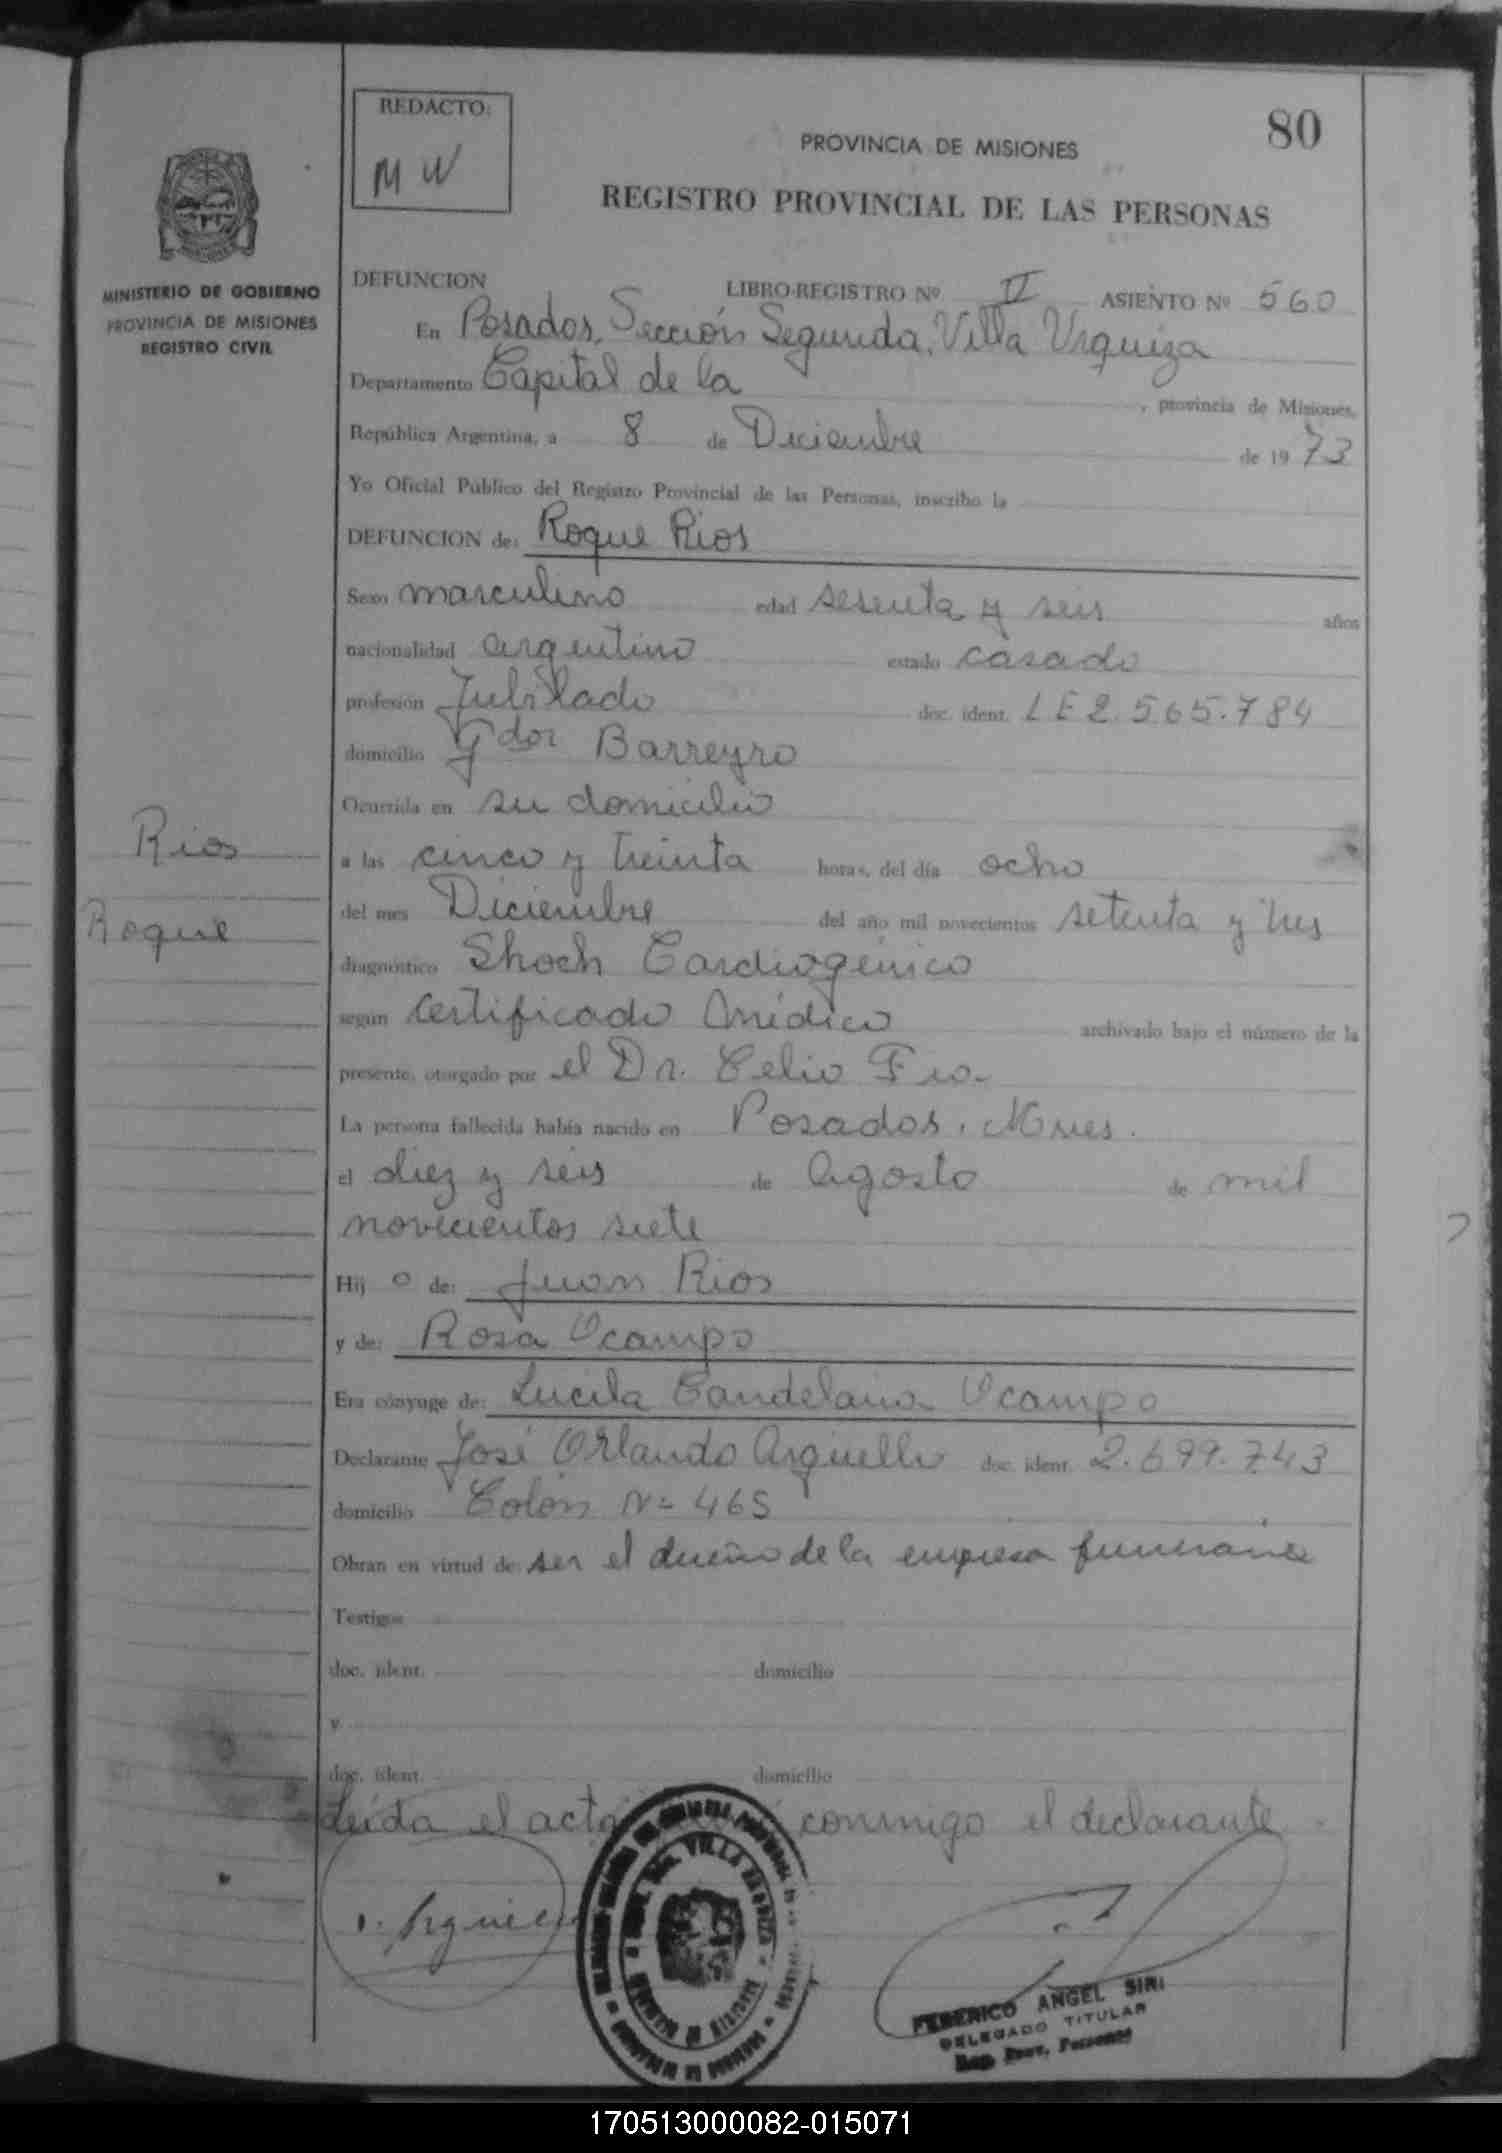 REDACTO:
MW
80
PROVINCIA DE MISIONES
REGISTRO PROVINCIAL DE LAS PERSONAS
MINISTERIO DE GOBIERNO
PROVINCIA DE MISIONES
REGISTRO CIVIL
DEFUNCION LIBRO-REGISTRO Nº II ASIENTO Nº 560
En Posadas, Sección Segunda, Villa Urquiza
Departamento Capital de la , provincia de Misiones,
República Argentina, a 8 de Diciembre de 1973
Yo Oficial Público del Registro Provincial de las Personas, inscribo la
DEFUNCION de: Roque Rios
Sexo masculino edad sesenta y seis años
nacionalidad argentino estado casado
profesión Jubilado doc. ident. LE 2.565.784
domicilio Gdor Barreyro
Ocurrida en su domicilio
Rios
a las cinco y treinta horas, del día ocho
Roque
del mes Diciembre del año mil novecientos setenta y tres
diagnóstico Shock Cardiogénico
según Certificado Médico archivado bajo el número de la
presente, otorgado por el Dr. Celio
La persona fallecida había nacido en Posadas, Mnes.
el diez y seis de Agosto de mil
novecientos siete
Hij o de: Juan Rios
y de: Rosa Ocampo
Era cónyuge de: Lucila Candelaria Ocampo
Declarante José Orlando Arguello doc. ident. 2.699.743
domicilio Colón Nº 465
Obran en virtud de: ser el dueño de la empresa funeraria
Testigos
doc. ident. domicilio
y
doc. ident. domicilio
Leida el acta conmigo el declarante.
FEDERICO ANGEL SIRI
DELEGADO TITULAR
Reg. Prov. Personas
170513000082-015071